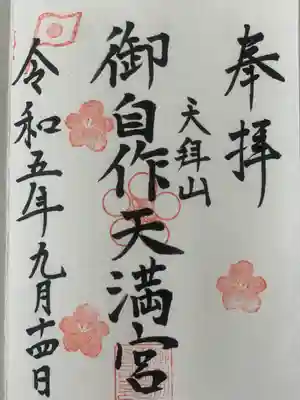 奉拝
天拜山
御自作天満宮
令和五年九月十四日